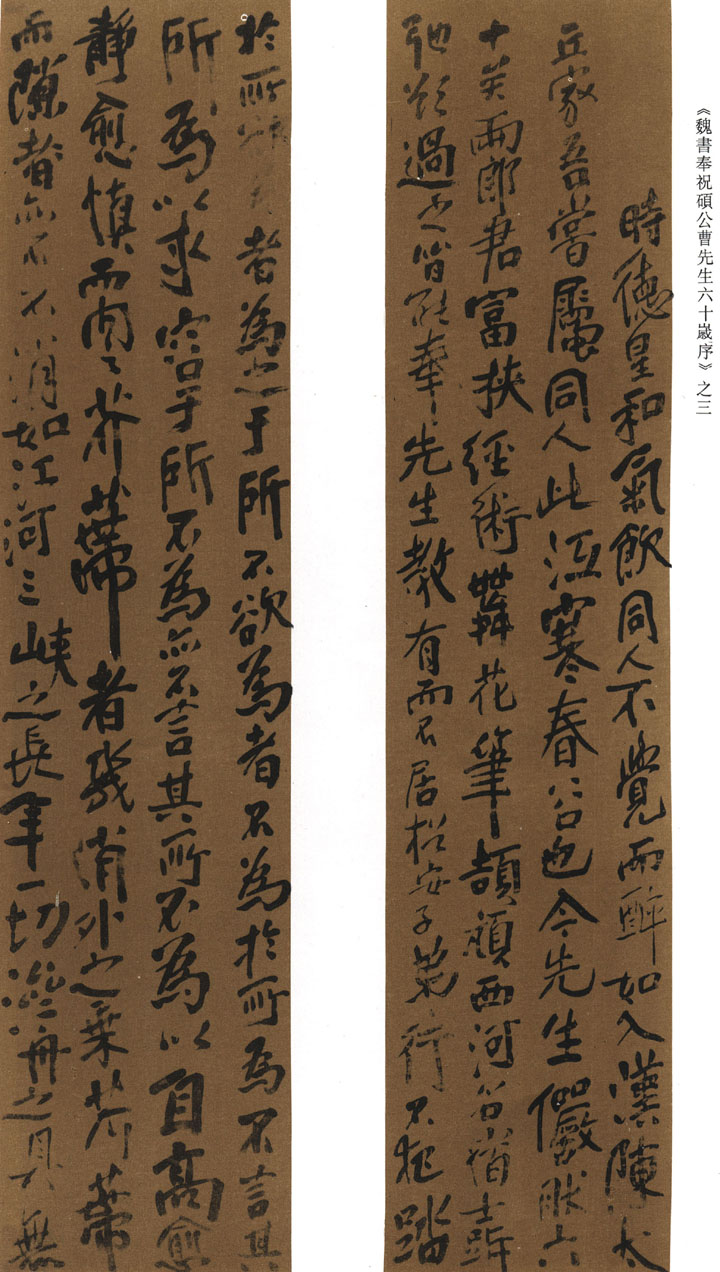 《魏書奉祝碩公曹先生六十歲序》之三
時德星和氣飲同人不覺而醉如入漢陳太
丘家吾嘗屬同人此沍寒春谷也今先生儼然六
十矣兩郎君富挾經術
花筆頡頏西河谷
弛
過之皆能奉先生教有而不居於安子弟行不犯
於所
者為之于所不欲為者不為於所為不言其
所為以求容于所不為亦不言其所不為以自高愈
靜愈慎而
芥蔕者幾消外之
芥蔕
而隙者亦
不
消如江河三峽之長年一切
舟之具無